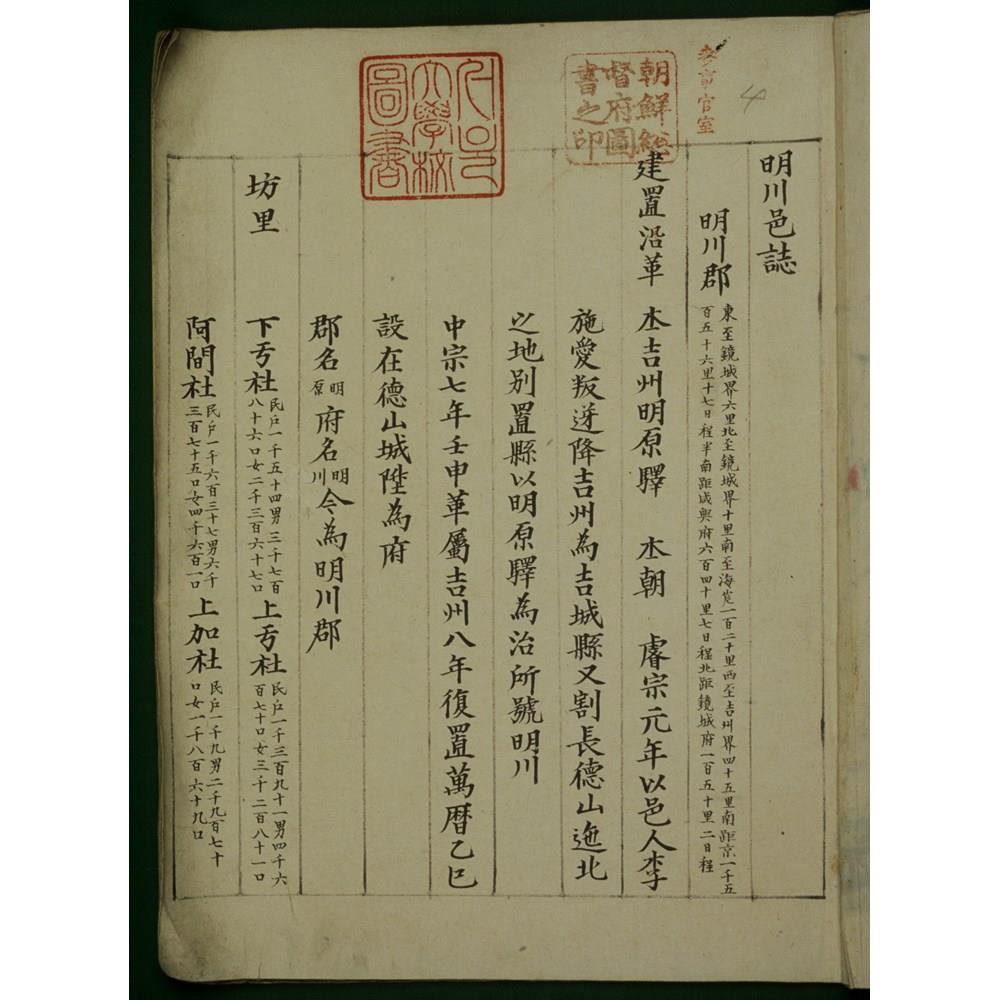 參事官室
4
朝鮮総
督府圖
書之印
大學校
圖書
明川邑誌
明川郡 東至鏡城界六里北至鏡城界十里南至海岸一百二十里西至吉州界四十五里南距京一千五
百五十六里十七日程半南距咸興府六百四十里七日程北距鏡城府一百五十里二日程
建置沿革 本吉州明原驛 本朝 睿宗元年以邑人李
施愛叛逆降吉州為吉城縣又割長德山迤北
之地别置縣以明原驛為治所號明川
中宗七年壬申革屬吉州八年復置萬曆乙巳
設在德山城陞為府
郡名明原府名明川今為明川郡
坊里 下亐社民戶一千五十四男三千七百
八十六口女二千三百六十七口上亐社民戶一千三百九十一男四千六
百七十口女三千二百八十一口
阿間社民戶一千六百三十七男六千
三百七十五口女四千六百一口上加社民戶一千九男二千九百七十
口女一千八百六十九口